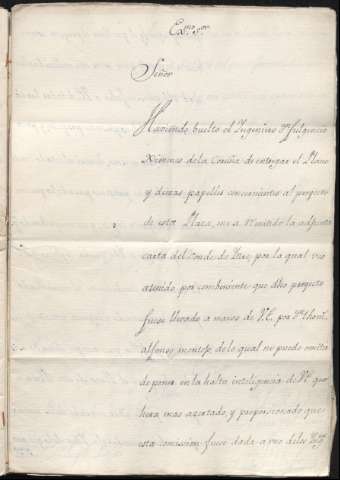 Ex.mo S.or
Señor
Haviendo buelto el Ingeniero Dn Fulgencio
Ximenes de la Coruña de entregar el Plano
y demas papeles concernientes al proyecto
de esta Plaza, me a remitido la adjunta
carta del Conde de Itre, por la qual veo
atendio por combeniente que dho proyecto
fuese llevado a manos de V.E. por Dn
Alfonso de lo qual no puedo omitir
de poner en la halta inteligencia de V.E. que
hera mas azertado, y proporcionado que
esta comision fuese dada a uno de los